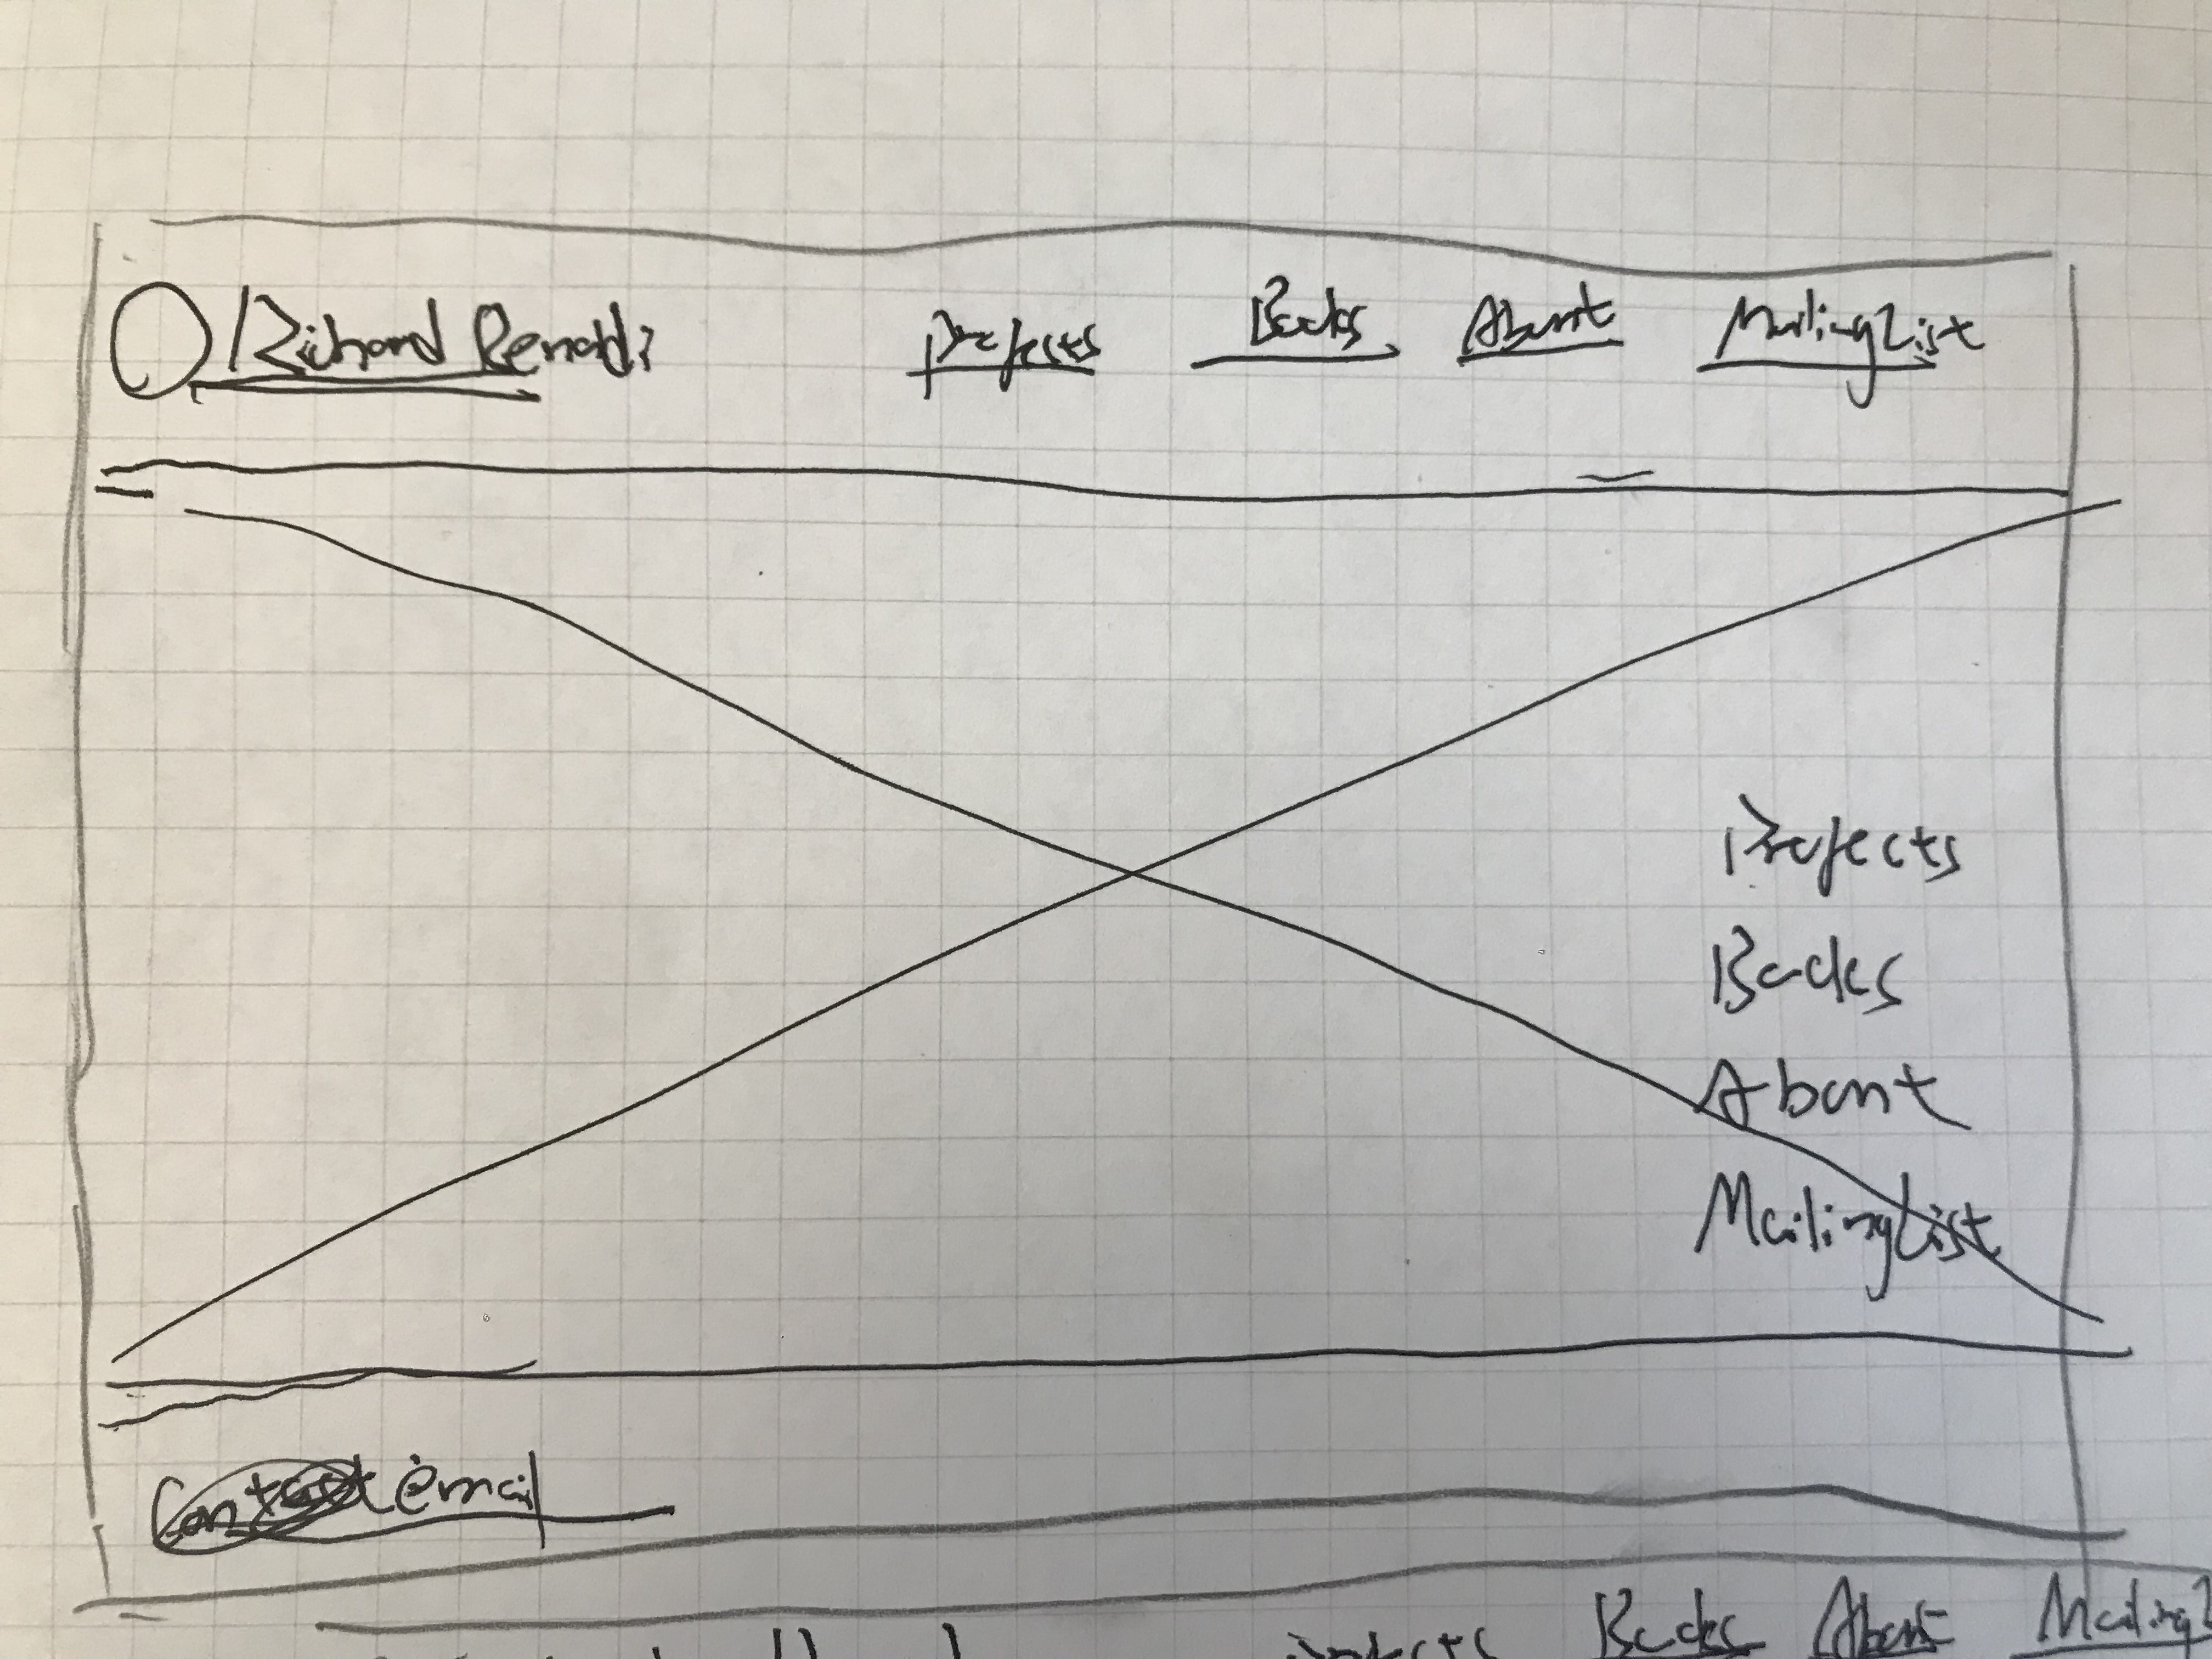 Richard Renaldi Projects Books About Mailing List
Projects
Books
About
Mailing List
Contact email
Projects Books About Mailing